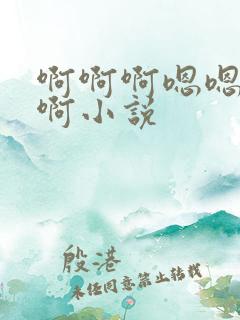 啊啊啊嗯嗯
啊小说
殷港
未经同意禁止转载